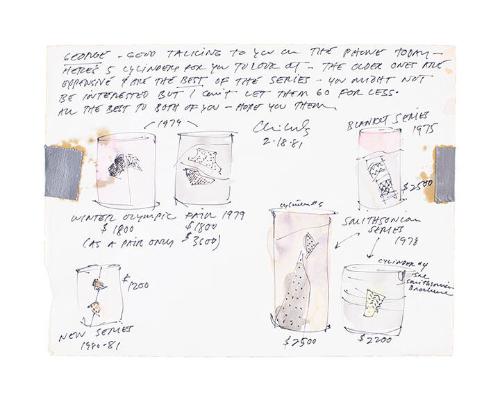 GEORGE - GOOD TALKING TO YOU ON THE PHONE TODAY -
HERE'S 5 CYLINDERS FOR YOU TO LOOK AT - THE OLDER ONES ARE
EXPENSIVE & ARE THE BEST OF THE SERIES - YOU MIGHT NOT
BE INTERESTED BUT I CAN'T LET THEM GO FOR LESS.
ALL THE BEST TO BOTH OF YOU - HOPE YOU THEM
1974
Chihuly
2.18.81
BLANKET SERIES
1975
$2500
WINTER OLYMPIC PAIR 1979
$1800
$1800
(AS A PAIR ONLY $3500)
cylinders
SMITHSONIAN
SERIES
1978
CYLINDER
the
Smithsonian
Brochure
$1200
NEW SERIES
1980-81
$2500
$2200